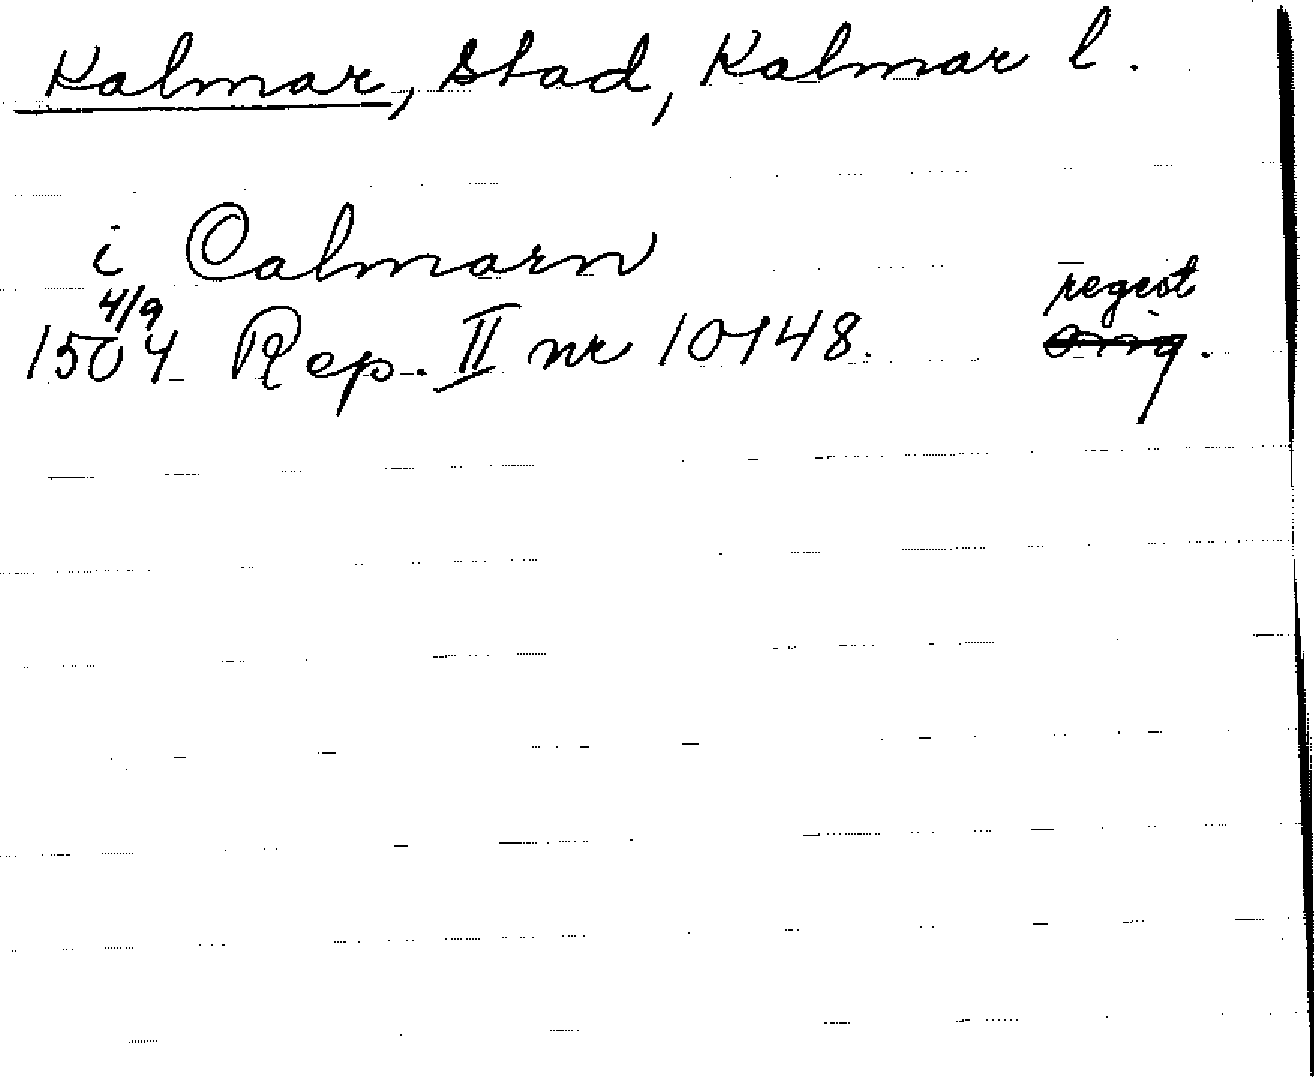 Kalmar, Stad, Kalmar l.
i Calmarn
4/9
regest
1504 Rep. II nr 10148. orig.